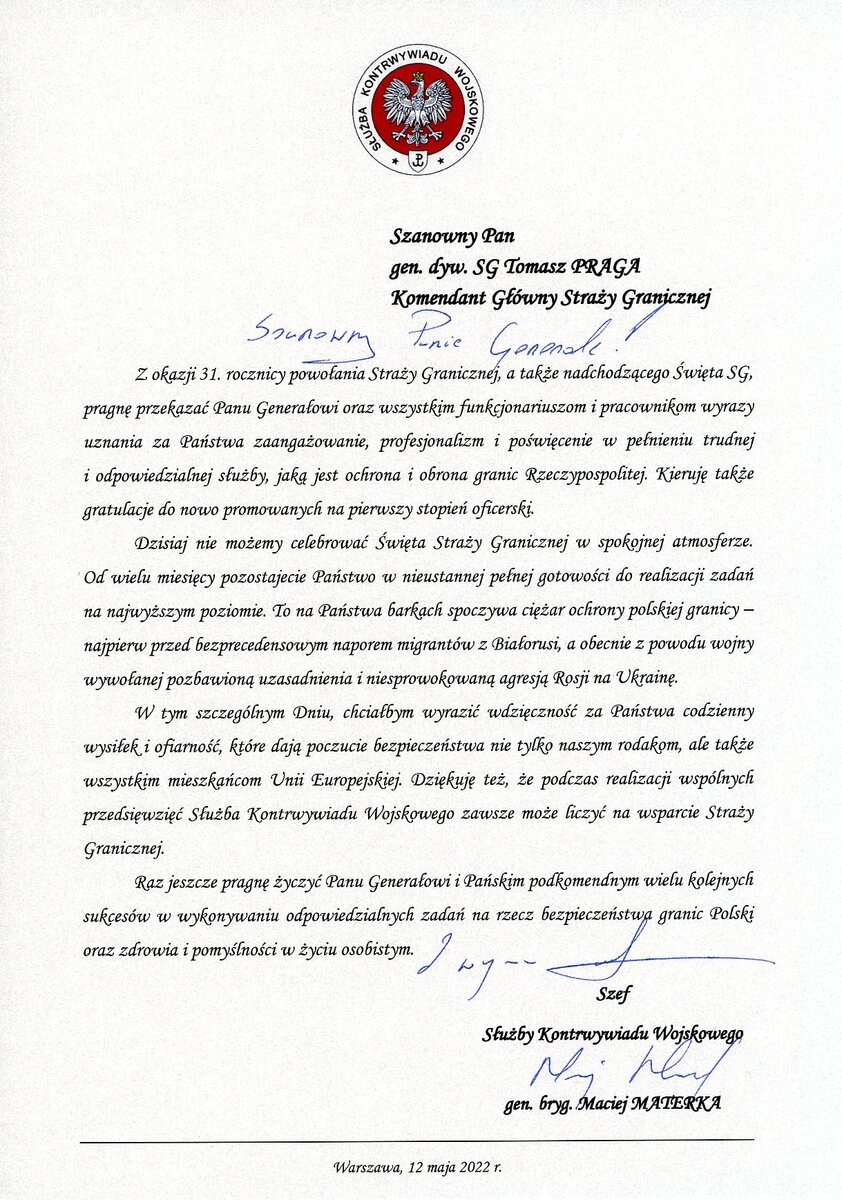 SŁUŻBA KONTRWYWIADU WOJSKOWEGO
Szanowny Pan
gen. dyw. SG Tomasz PRAGA
Komendant Główny Straży Granicznej
Szanowny Panie Generale!
Z okazji 31. rocznicy powołania Straży Granicznej, a także nadchodzącego Święta SG,
pragnę przekazać Panu Generałowi oraz wszystkim funkcjonariuszom i pracownikom wyrazy
uznania za Państwa zaangażowanie, profesjonalizm i poświęcenie w pełnieniu trudnej
i odpowiedzialnej służby, jaką jest ochrona i obrona granic Rzeczypospolitej. Kieruję także
gratulacje do nowo promowanych na pierwszy stopień oficerski.
Dzisiaj nie możemy celebrować Święta Straży Granicznej w spokojnej atmosferze.
Od wielu miesięcy pozostajecie Państwo w nieustannej pełnej gotowości do realizacji zadań
na najwyższym poziomie. To na Państwa barkach spoczywa ciężar ochrony polskiej granicy –
najpierw przed bezprecedensowym naporem migrantów z Białorusi, a obecnie z powodu wojny
wywołanej pozbawioną uzasadnienia i niesprowokowaną agresją Rosji na Ukrainę.
W tym szczególnym Dniu, chciałbym wyrazić wdzięczność za Państwa codzienny
wysiłek i ofiarność, które dają poczucie bezpieczeństwa nie tylko naszym rodakom, ale także
wszystkim mieszkańcom Unii Europejskiej. Dziękuję też, że podczas realizacji wspólnych
przedsięwzięć Służba Kontrwywiadu Wojskowego zawsze może liczyć na wsparcie Straży
Granicznej.
Raz jeszcze pragnę życzyć Panu Generałowi i Pańskim podkomendnym wielu kolejnych
sukcesów w wykonywaniu odpowiedzialnych zadań na rzecz bezpieczeństwa granic Polski
oraz zdrowia i pomyślności w życiu osobistym.
Szef
Służby Kontrwywiadu Wojskowego
gen. bryg. Maciej MATERKA
Warszawa, 12 maja 2022 r.